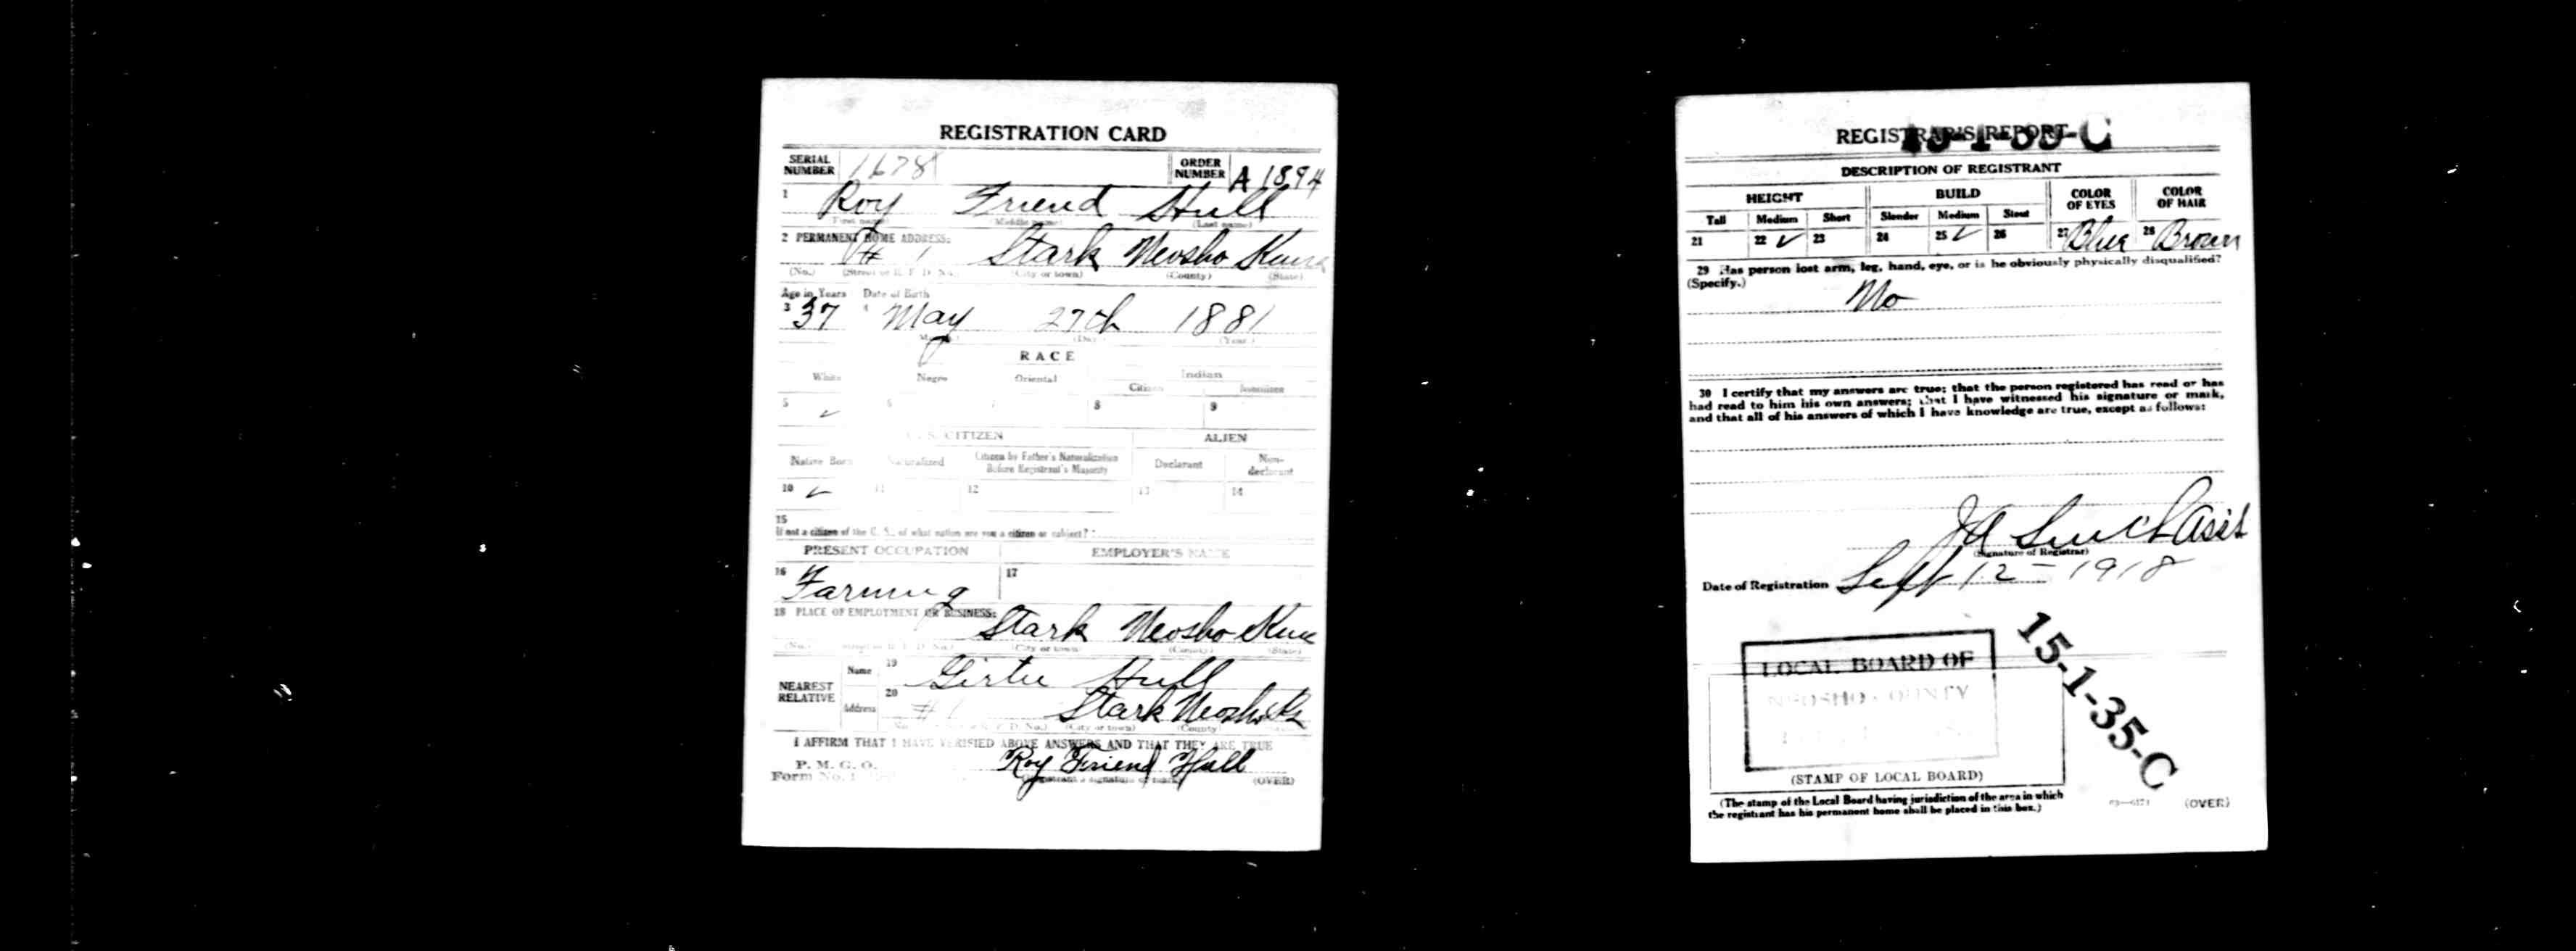 REGISTRATION CARD
SERIAL NUMBER 1678 ORDER NUMBER A 1894
1 Roy Friend Hull
(First name) (Middle name) (Last name)
2 PERMANENT HOME ADDRESS:
# 1 Stark Neosho Kans
(No.) (Street or R. F. D. No.) (City or town) (County) (State)
Age in Years Date of Birth
3 37 4 May 27th 1881
(Month) (Day) (Year)
RACE
White Negro Oriental Indian
Citizen Noncitizen
5 ✓ 6 7 8 9
U. S. CITIZEN ALIEN
Native Born Naturalized Citizen by Father's Naturalization Before Registrant's Majority Declarant Non-declarant
10 ✓ 11 12 13 14
15
If not a citizen of the U. S., of what nation are you a citizen or subject?
PRESENT OCCUPATION EMPLOYER'S NAME
16 Farming 17
18 PLACE OF EMPLOYMENT OR BUSINESS:
Stark Neosho
(No.) (Street or R. F. D. No.) (City or town) (County) (State)
NEAREST RELATIVE Name 19 Hull
Address 20 # 1 Stark Neosho Ks
(No.) (Street or R. F. D. No.) (City or town) (County) (State)
I AFFIRM THAT I HAVE VERIFIED ABOVE ANSWERS AND THAT THEY ARE TRUE
P. M. G. O.
Form No. 1 Roy Friend Hull
(Registrant's signature or mark) (OVER)
REGISTRAR'S REPORT
DESCRIPTION OF REGISTRANT
HEIGHT BUILD COLOR OF EYES COLOR OF HAIR
Tall Medium Short Slender Medium Stout
21 22 ✓ 23 24 25 ✓ 26 27 Blue 28 Brown
29 Has person lost arm, leg, hand, eye, or is he obviously physically disqualified?
(Specify.)
No
30 I certify that my answers are true; that the person registered has read or has
had read to him his own answers; that I have witnessed his signature or mark,
and that all of his answers of which I have knowledge are true, except as follows:
(Signature of Registrar)
Date of Registration Sept 12 - 1918
LOCAL BOARD OF
NEOSHO COUNTY
15-1-35-C
(STAMP OF LOCAL BOARD)
(The stamp of the Local Board having jurisdiction of the area in which
the registrant has his permanent home shall be placed in this box.)
(OVER)